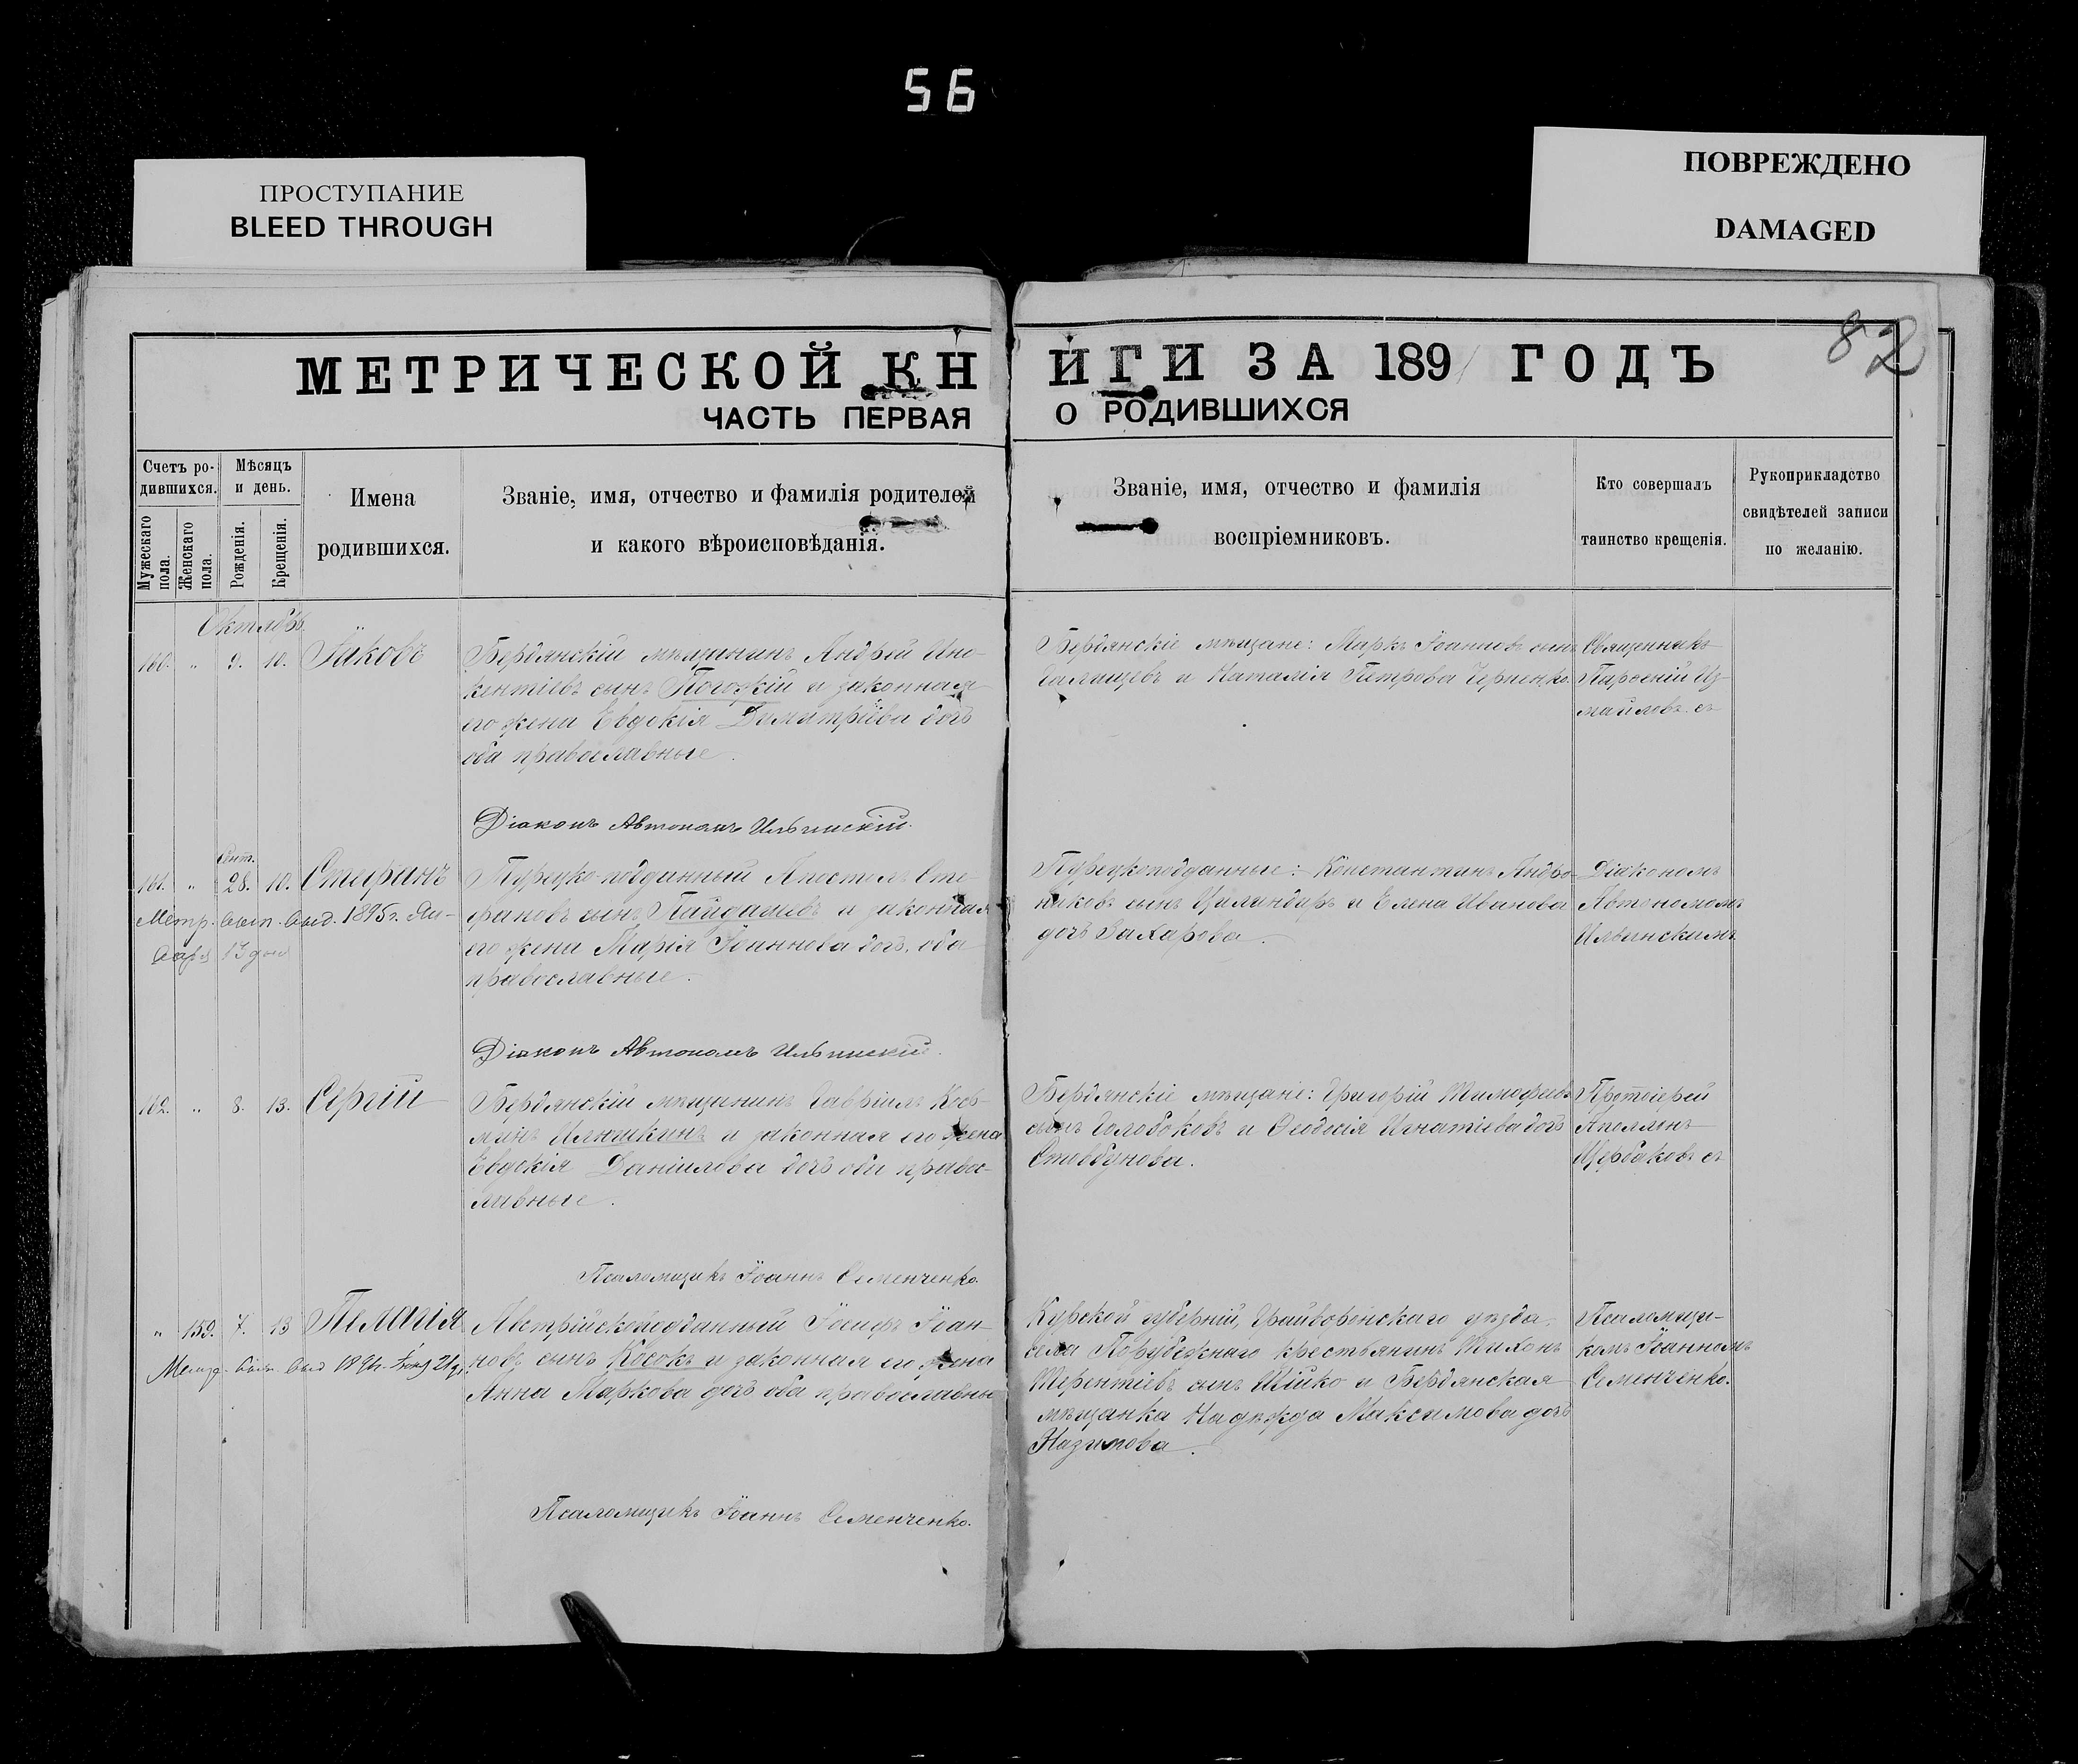 56
ПРОСТУПАНИЕ
BLEED THROUGH
ПОВРЕЖДЕНО
DAMAGED
82
МЕТРИЧЕСКОЙ КНИГИ ЗА 189 ГОДЪ
ЧАСТЬ ПЕРВАЯ О РОДИВШИХСЯ
Счетъ ро-
дившихся.
Мужескаго пола.
Женскаго пола.
Мѣсяцъ
и день.
Рожденія.
Крещенія.
Имена
родившихся.
Званіе, имя, отчество и фамилія родителей
и какого вѣроисповѣданія.
Званіе, имя, отчество и фамилія
воспріемниковъ.
Кто совершалъ
таинство крещенія.
Рукоприкладство
свидѣтелей записи
по желанію.
Октябрь
160. " 9. 10. Іаковъ
Бердянскій мѣщанинъ Андрей Ино-
кентіевъ сынъ Погожій и законная
его жена Евдокія Димитріева дочь
оба православные.
Бердянскіе мѣщане: Маркъ Іоанновъ сынъ
и Наталія Петрова Черненко.
Священникъ
Парѳеній Из-
майловъ съ
Діаконъ Автономъ Ильинскій.
Сент.
161. " 28. 10.
Метр. вып. выд. 1895 г. Ян-
варя 13 дня
Турецко-подданный Апостолъ Сте-
фановъ сынъ и законная
его жена Марія Іоаннова дочь, оба
православные.
Турецкоподданные: Константинъ
сынъ и Елена Иванова
дочь Захарова.
Діакономъ
Автономомъ
Ильинскимъ
Діаконъ Автономъ Ильинскій.
162. " 8. 13. Сергій
Бердянскій мѣщанинъ Гавріилъ Косьминъ
Илюшкинъ и законная его жена
Евдокія Даніилова дочь оба право-
славные.
Бердянскіе мѣщане: Григорій Тимофеевъ
сынъ Голобоковъ и Ѳеодосія Игнатіева дочь
Протоіерей
Аполлонъ
Щербаковъ съ
Псаломщикъ Іоаннъ Семенченко.
" 159. 7. 13 Пелагія
Австрійскоподданный Іосифъ Іоан-
новъ сынъ Косокъ и законная его жена
Анна Маркова дочь оба православны
Курской губерніи, Грайворонскаго уѣзда,
села крестьянинъ Тихонъ
Терентіевъ сынъ Шійко и Бердянская
мѣщанка Надежда Максимова дочь
Назимова.
Псаломщи-
комъ Іоанномъ
Семенченко.
Псаломщикъ Іоаннъ Семенченко.